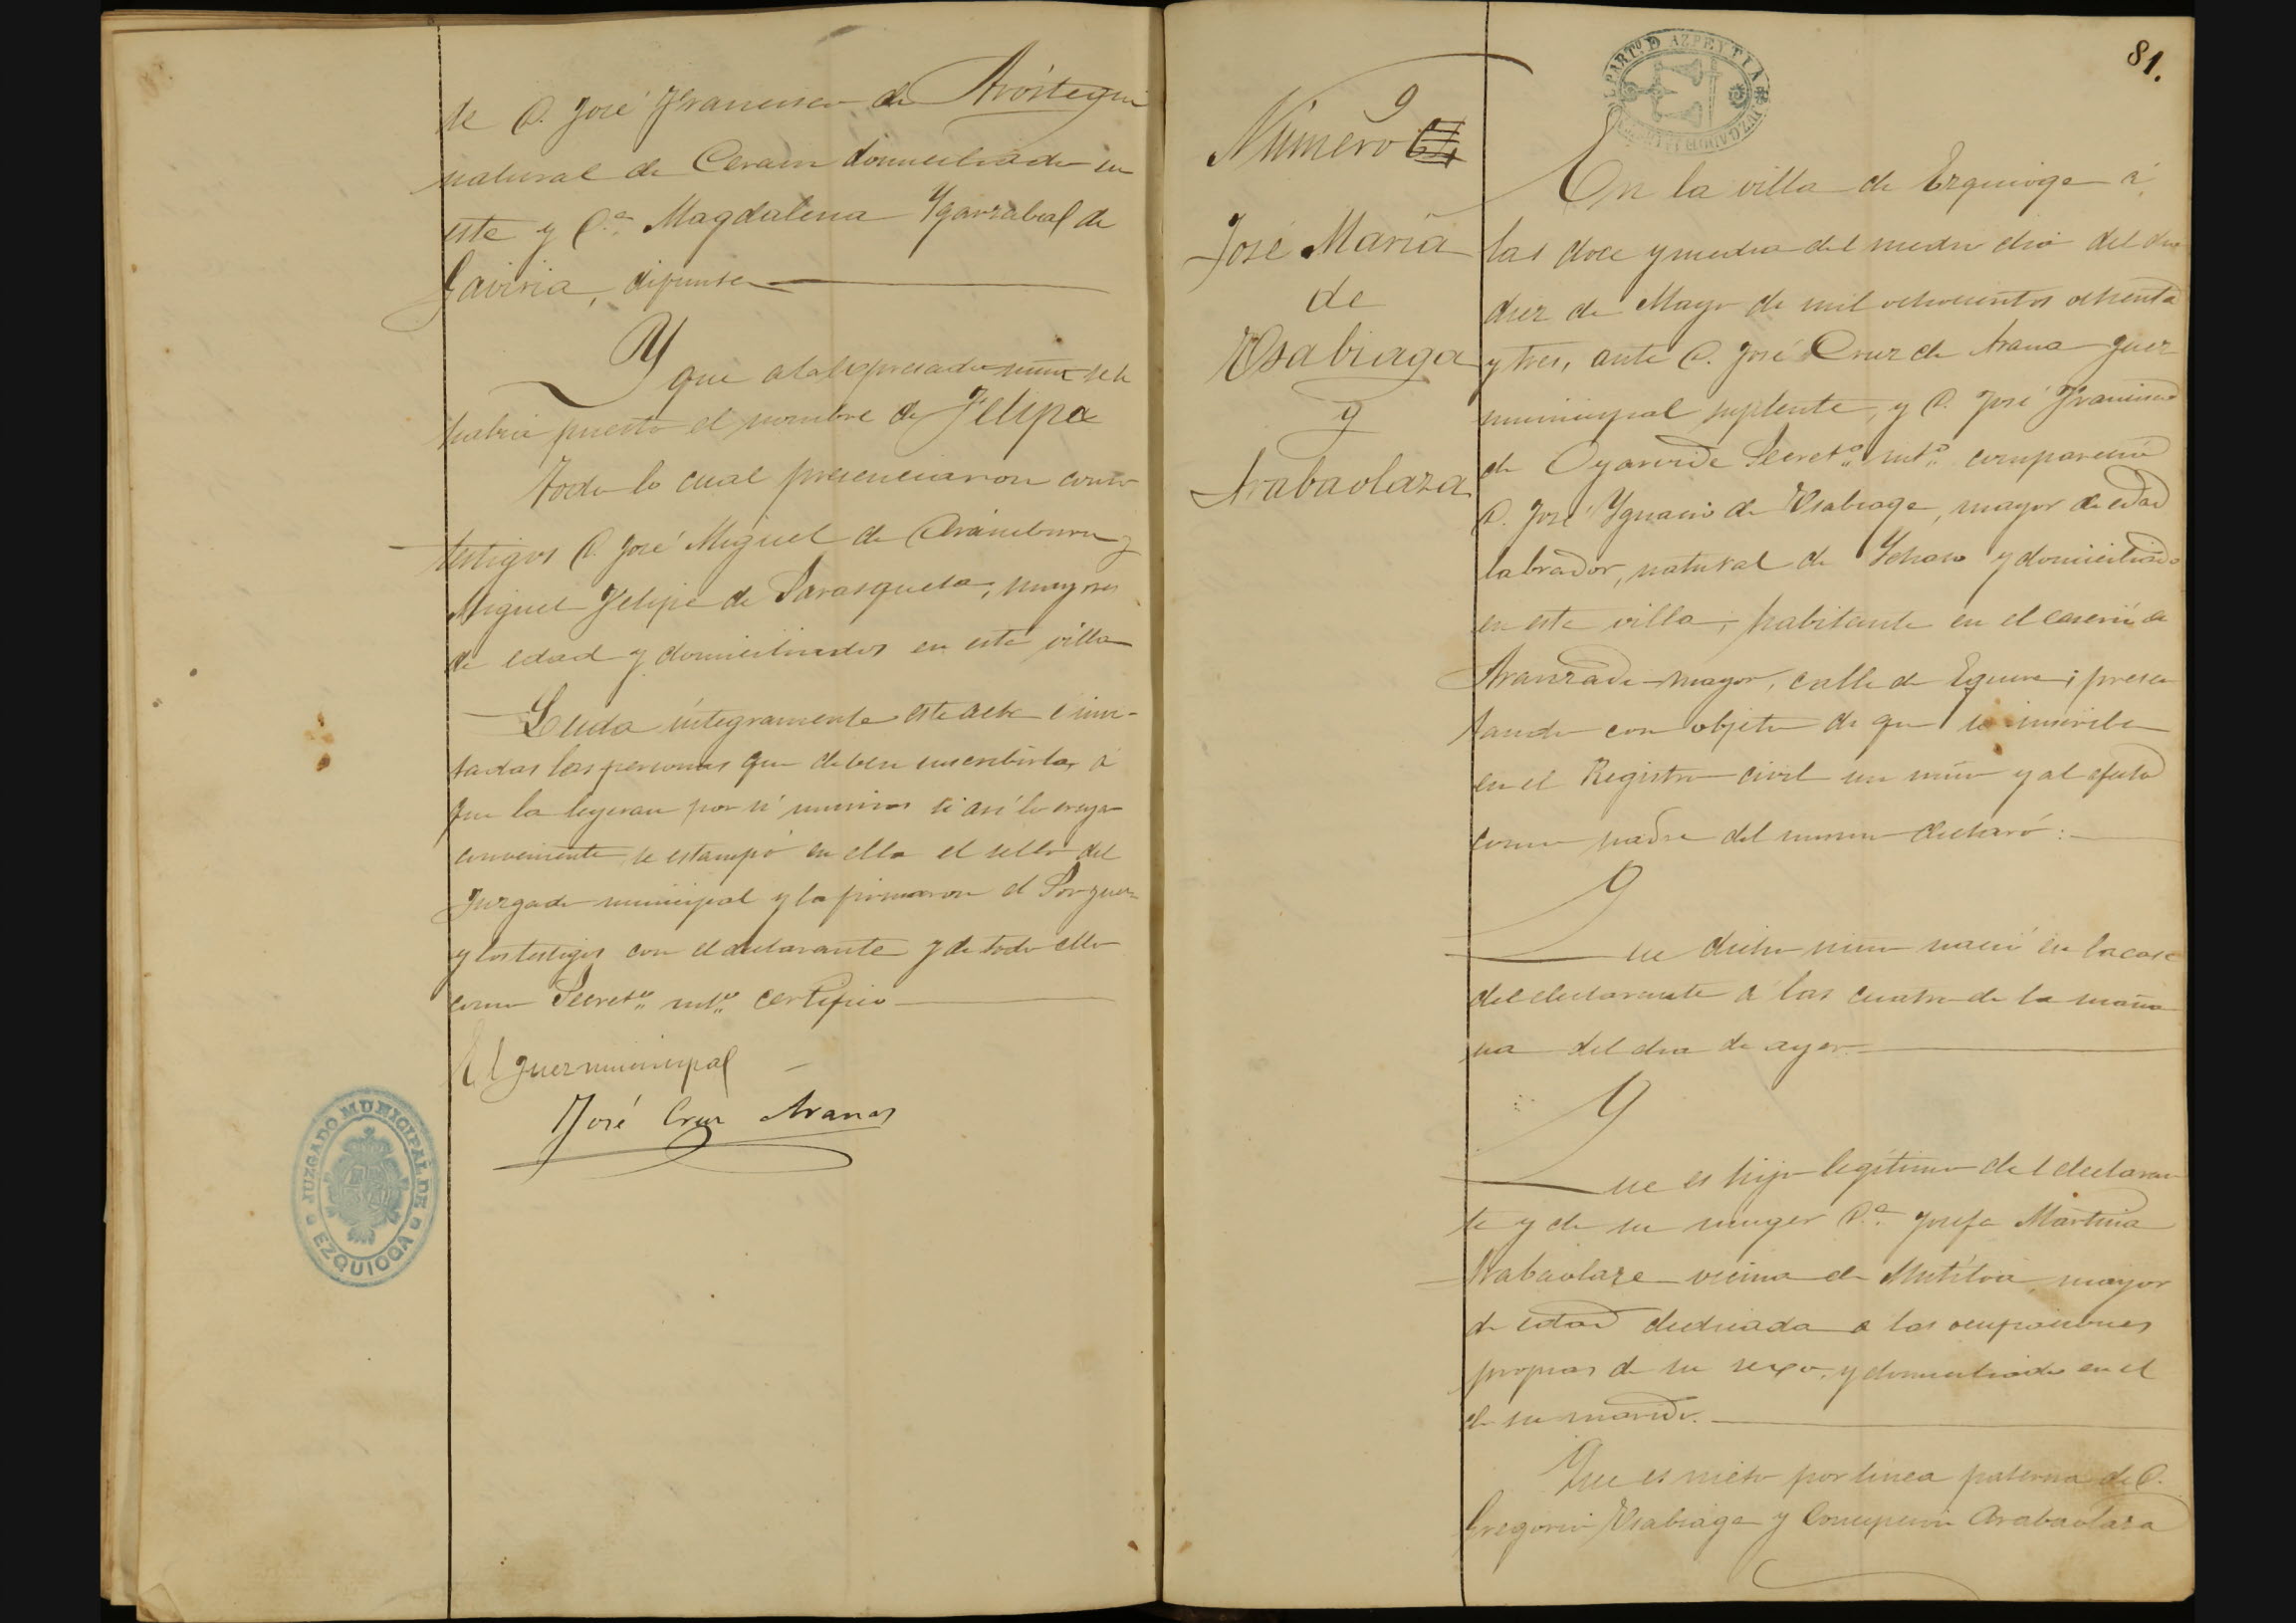 de D. José Francisco de Aróstegui
natural de Cerain domiciliado en
este y D.ª Magdalena Ygarzabal de
Gaviria, difunta
Y que a la expresada niña se le
había puesto el nombre de Felipa
Todo lo cual presenciaron como
testigos D. José Miguel de Aramburu y
Miguel Felipe de Sarasqueta, mayores
de edad y domiciliados en esta villa
Leida integramente este acta é invi-
tadas las personas que deben suscribirla, á
que la leyeran por sí mismos si así lo creyan
conveniente, se estampó en ella el sello del
Juzgado municipal y la firmaron el Sor Juez
y los testigos con el declarante y de todo ello
como Secret.º int.º certifico
El Juez municipal
José Cruz Aranas
JUZGADO MUNICIPAL DE
EZQUIOGA
81.
PART.º D AZPEYTIA
Número 9
José María
de
Usabiaga
y
Arabaolaza
En la villa de Ezquioga á
las doce y media del medio dia del dia
diez de Mayo de mil ochocientos ochenta
y tres, ante D. José Cruz de Arana Juez
municipal suplente, y D. José Francisco
de Oyarvide Secret.º int.º compareció
D. José Ygnacio de Usabiaga, mayor de edad
labrador, natural de Ychaso y domiciliado
en esta villa, habitante en el caserío de
Aranzadi mayor, calle de Eguino; presen
tando con objeto de que se inscriba
en el Registro civil un niño y al efecto
como padre del mismo declaró:
Que dicho niño nació en la casa
del declarante á las cuatro de la maña
na del dia de ayer.
Que es hijo legítimo del declaran
te y de su muger D.ª Josefa Martina
Arabaolaza vecina de Mutiloa, mayor
de edad dedicada a las ocupaciones
propias de su sexo, y domiciliada en el
de su marido.
Que es nieto por linea paterna de D.
Gregorio Usabiaga y Concepcion Arabaolaza